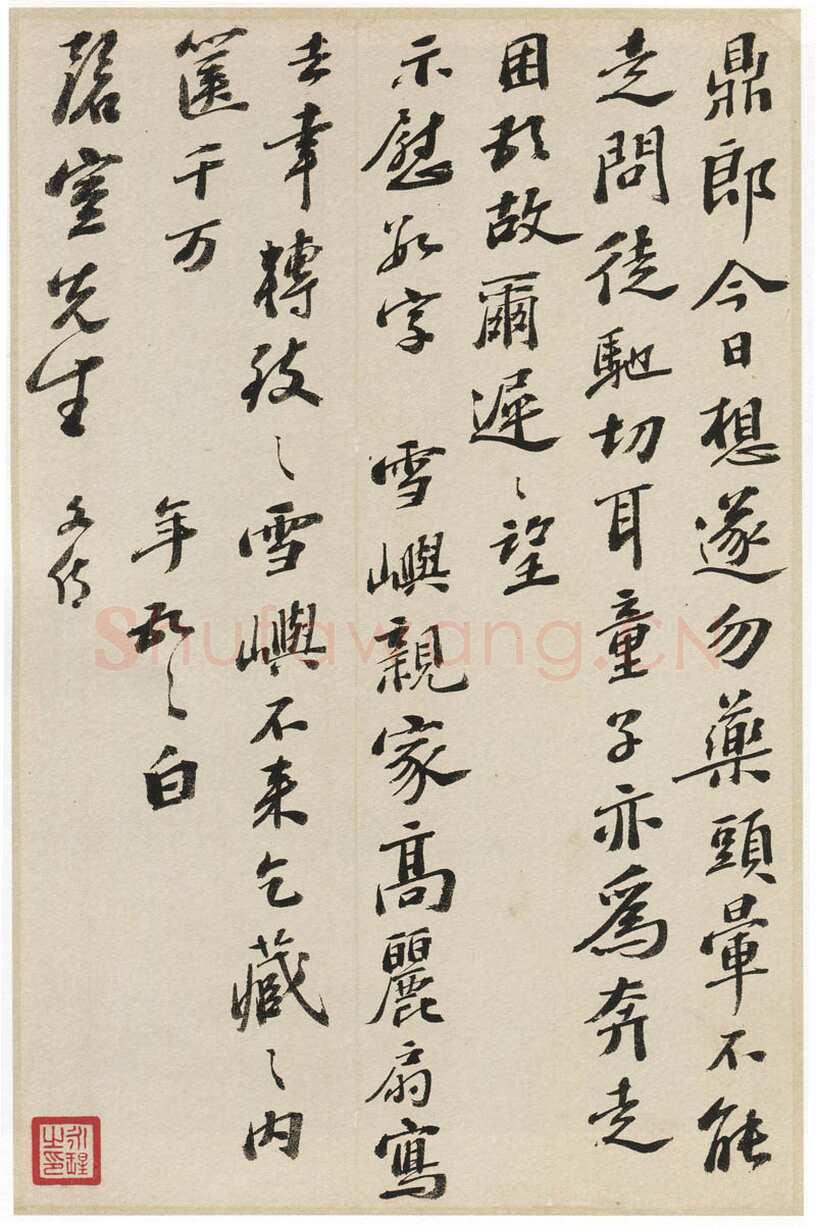 鼎郎今日想遂勿藥頭暈不能
走問徒馳切耳童子亦爲奔走
困故爾遲〻望
示慰數字 雪嶼親家高麗扇寫
去幸轉致〻雪嶼不來乞藏〻内
篋千万
年〻白
磬室先生 文侍
Shufawang.CN